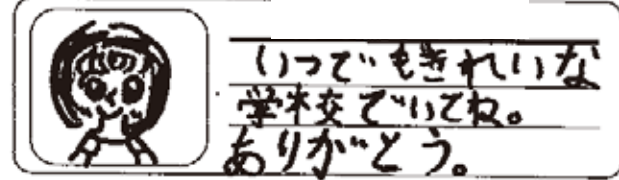 いつでもきれいな
学校でいてね。
ありがとう。